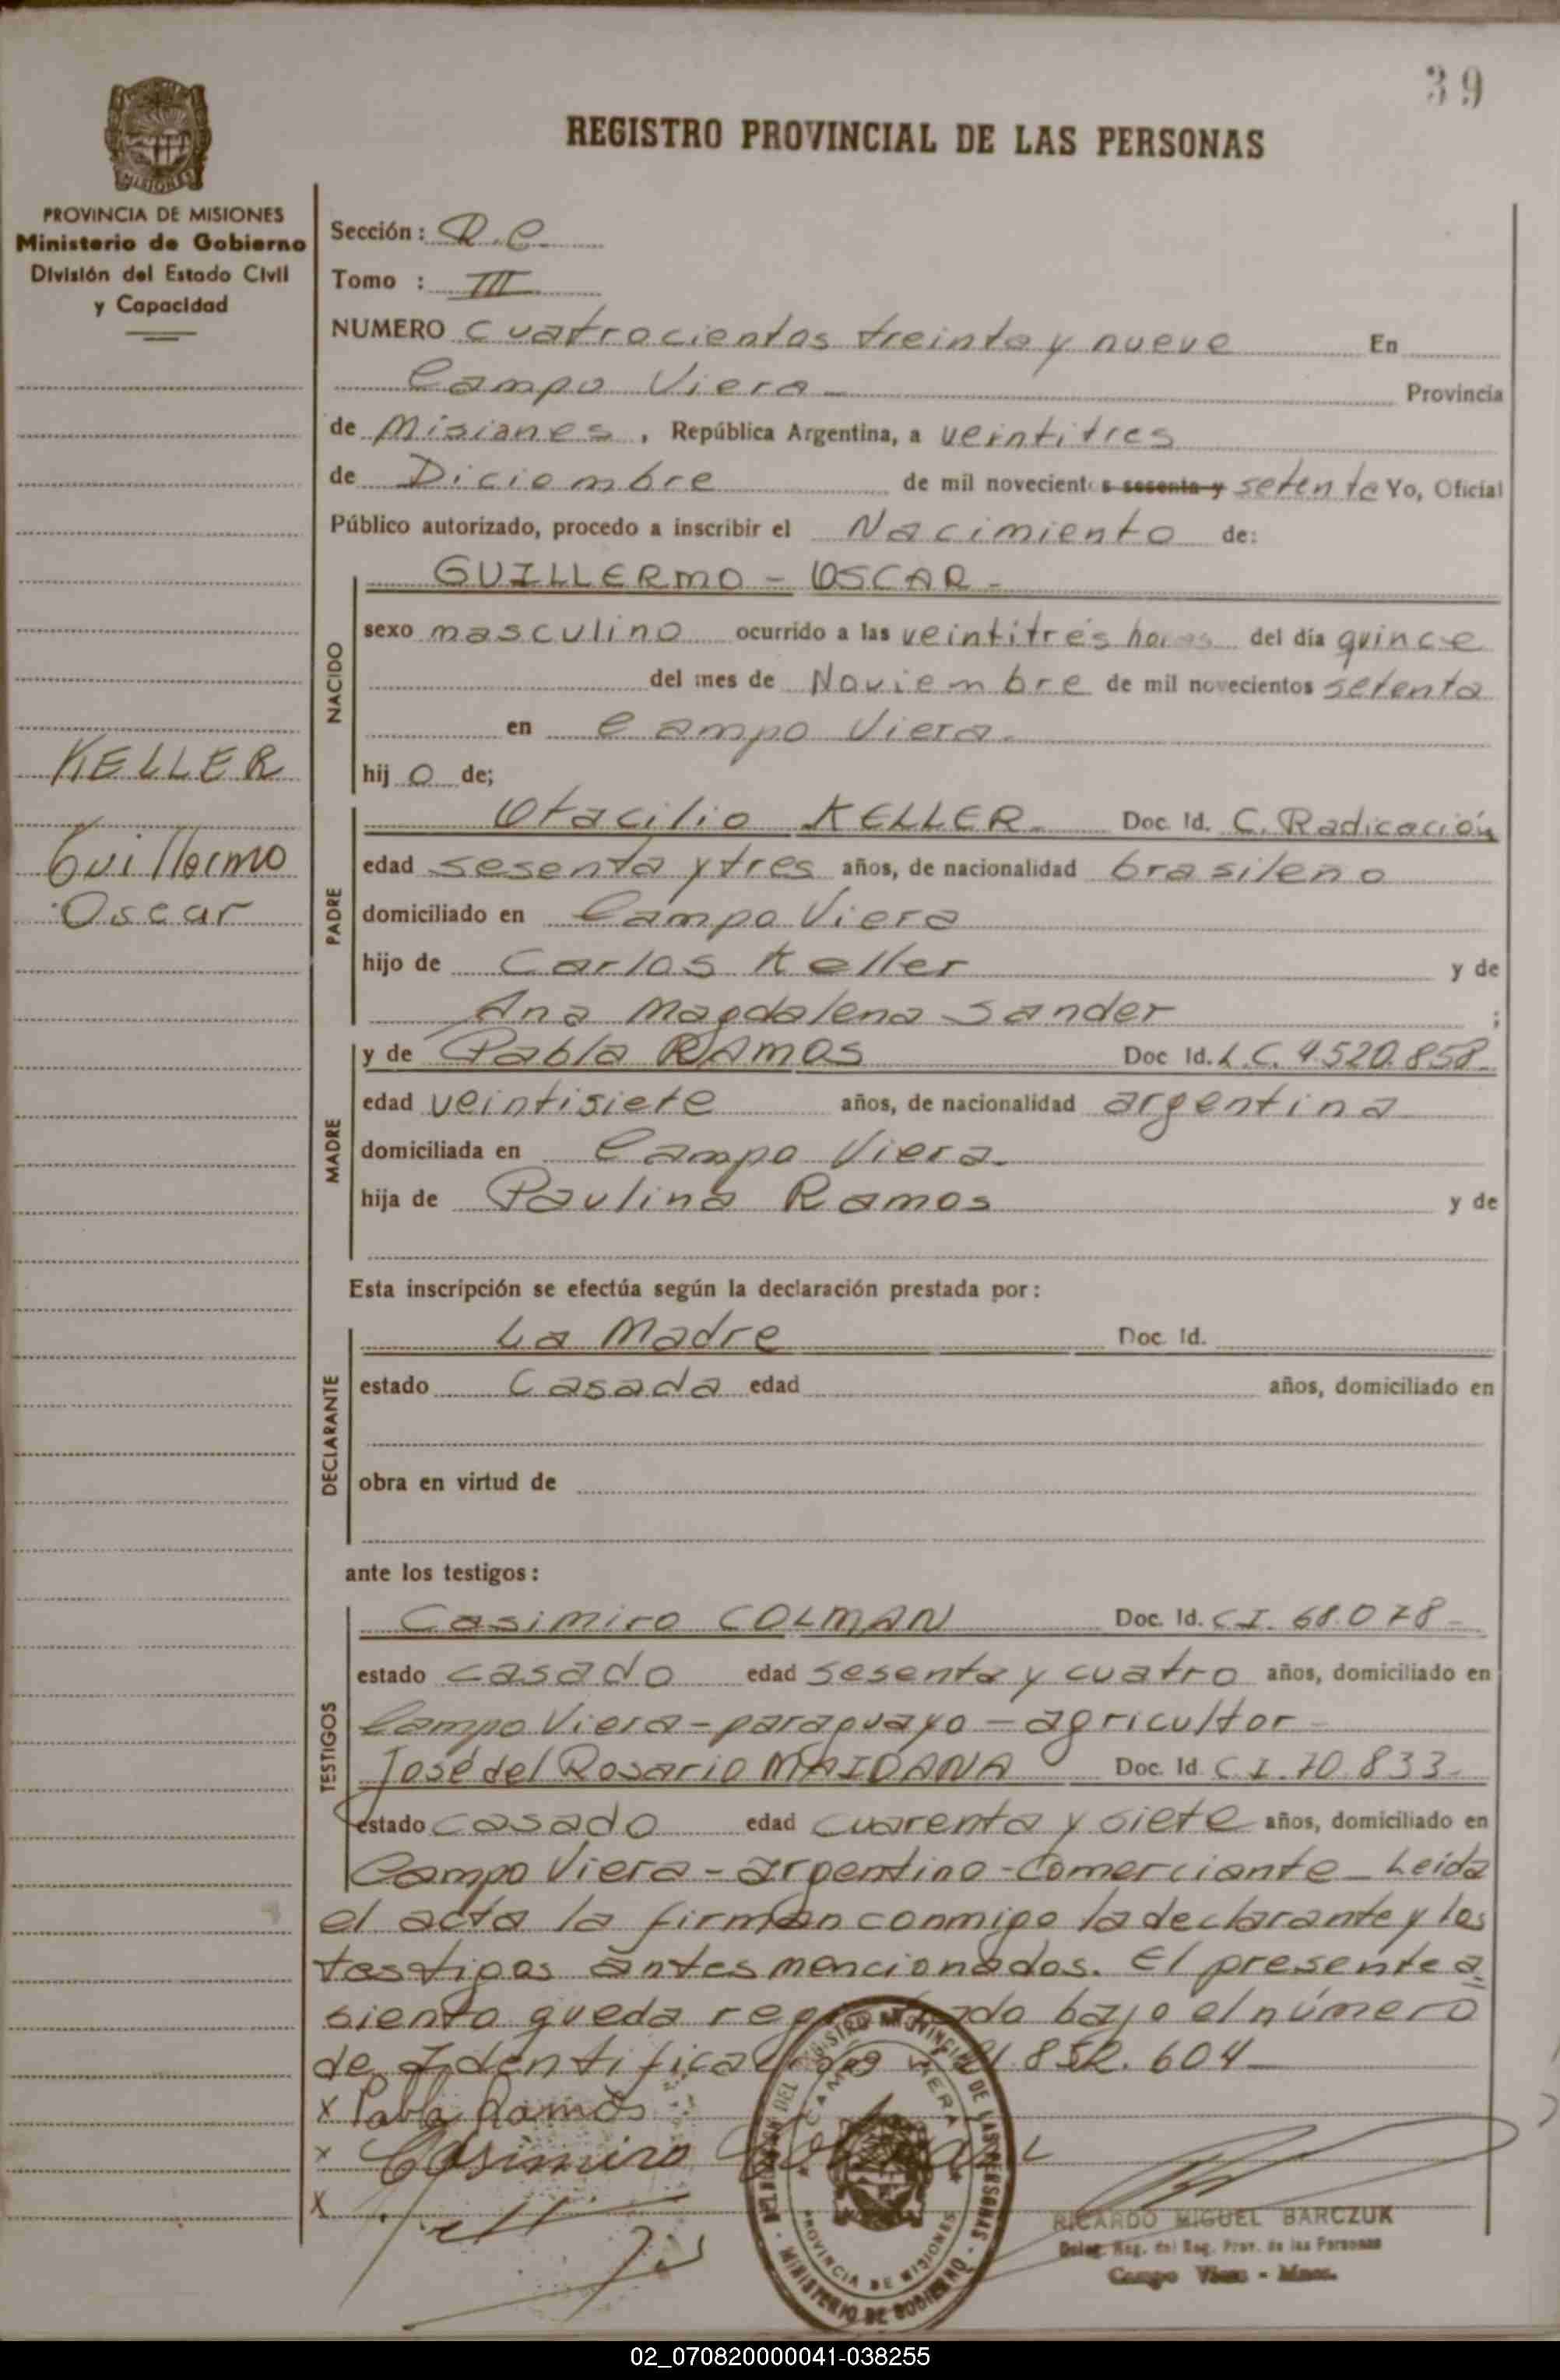 39
REGISTRO PROVINCIAL DE LAS PERSONAS
MISIONES
PROVINCIA DE MISIONES
Ministerio de Gobierno
División del Estado Civil
y Capacidad
KELLER
Guillermo
Oscar
Sección: R.C.
Tomo : III
NUMERO cuatrocientos treinta y nueve En
Campo Viera Provincia
de Misiones, República Argentina, a veintitres
de Diciembre de mil novecientos sesenta y setenta Yo, Oficial
Público autorizado, procedo a inscribir el Nacimiento de:
NACIDO
GUILLERMO - OSCAR -
sexo masculino ocurrido a las veintitrés horas del día quince
del mes de Noviembre de mil novecientos setenta
en Campo Viera.
hij o de;
PADRE
Otacilio KELLER Doc. Id. C. Radicación
edad sesenta y tres años, de nacionalidad brasileno
domiciliado en Campo Viera
hijo de Carlos Keller y de
Ana Magdalena Sander ;
MADRE
y de Pabla RAMOS Doc Id. L.C. 4.520.858
edad veintisiete años, de nacionalidad argentina
domiciliada en Campo Viera
hija de Paulina Ramos y de
Esta inscripción se efectúa según la declaración prestada por:
DECLARANTE
La Madre Doc. Id.
estado Casada edad años, domiciliado en
obra en virtud de
ante los testigos:
TESTIGOS
Casimiro COLMAN Doc. Id. C.I. 68.078
estado casado edad sesenta y cuatro años, domiciliado en
Campo Viera - paraguayo - agricultor
José del Rosario MAIDANA Doc. Id. C.I. 70.833
estado casado edad cuarenta y siete años, domiciliado en
Campo Viera - argentino - Comerciante - Leida
el acta la firman conmigo la declarante y los
testigos antes mencionados. El presente a
siento queda registrado bajo el número
de Identificación 21.852.604
x Pabla Ramos
x Casimiro Colman
x
PROVINCIA DE MISIONES
MINISTERIO DE GOBIERNO
RICARDO MIGUEL BARCZUK
Deleg. Reg. del Reg. Prov. de las Personas
Campo Viera - Mnes.
02_070820000041-038255